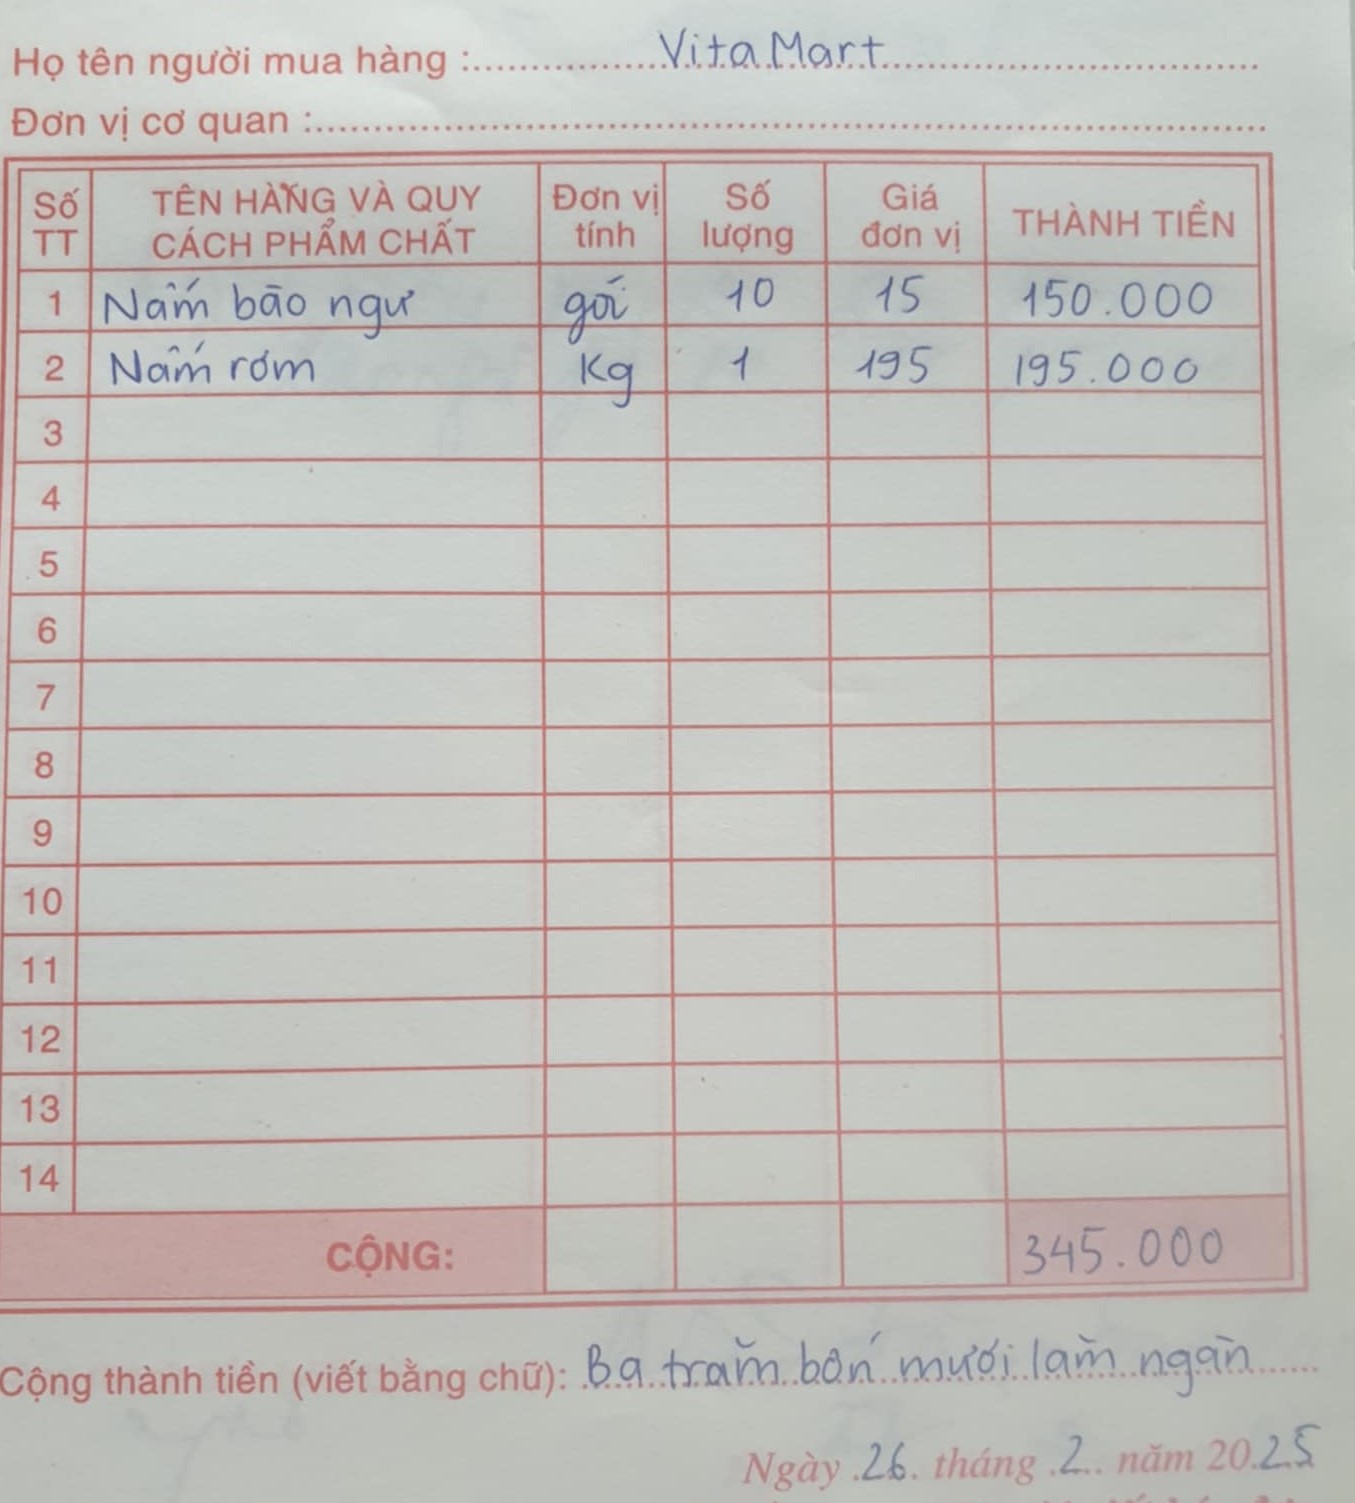 Họ tên người mua hàng : Vita Mart
Đơn vị cơ quan :
Số TT TÊN HÀNG VÀ QUY CÁCH PHẨM CHẤT Đơn vị tính Số lượng Giá đơn vị THÀNH TIỀN
1 Nấm bào ngư gói 10 15 150.000
2 Nấm rơm Kg 1 195 195.000
3
4
5
6
7
8
9
10
11
12
13
14
CỘNG: 345.000
Cộng thành tiền (viết bằng chữ): Ba trăm bốn mươi lăm ngàn
Ngày 26 tháng 2 năm 2025